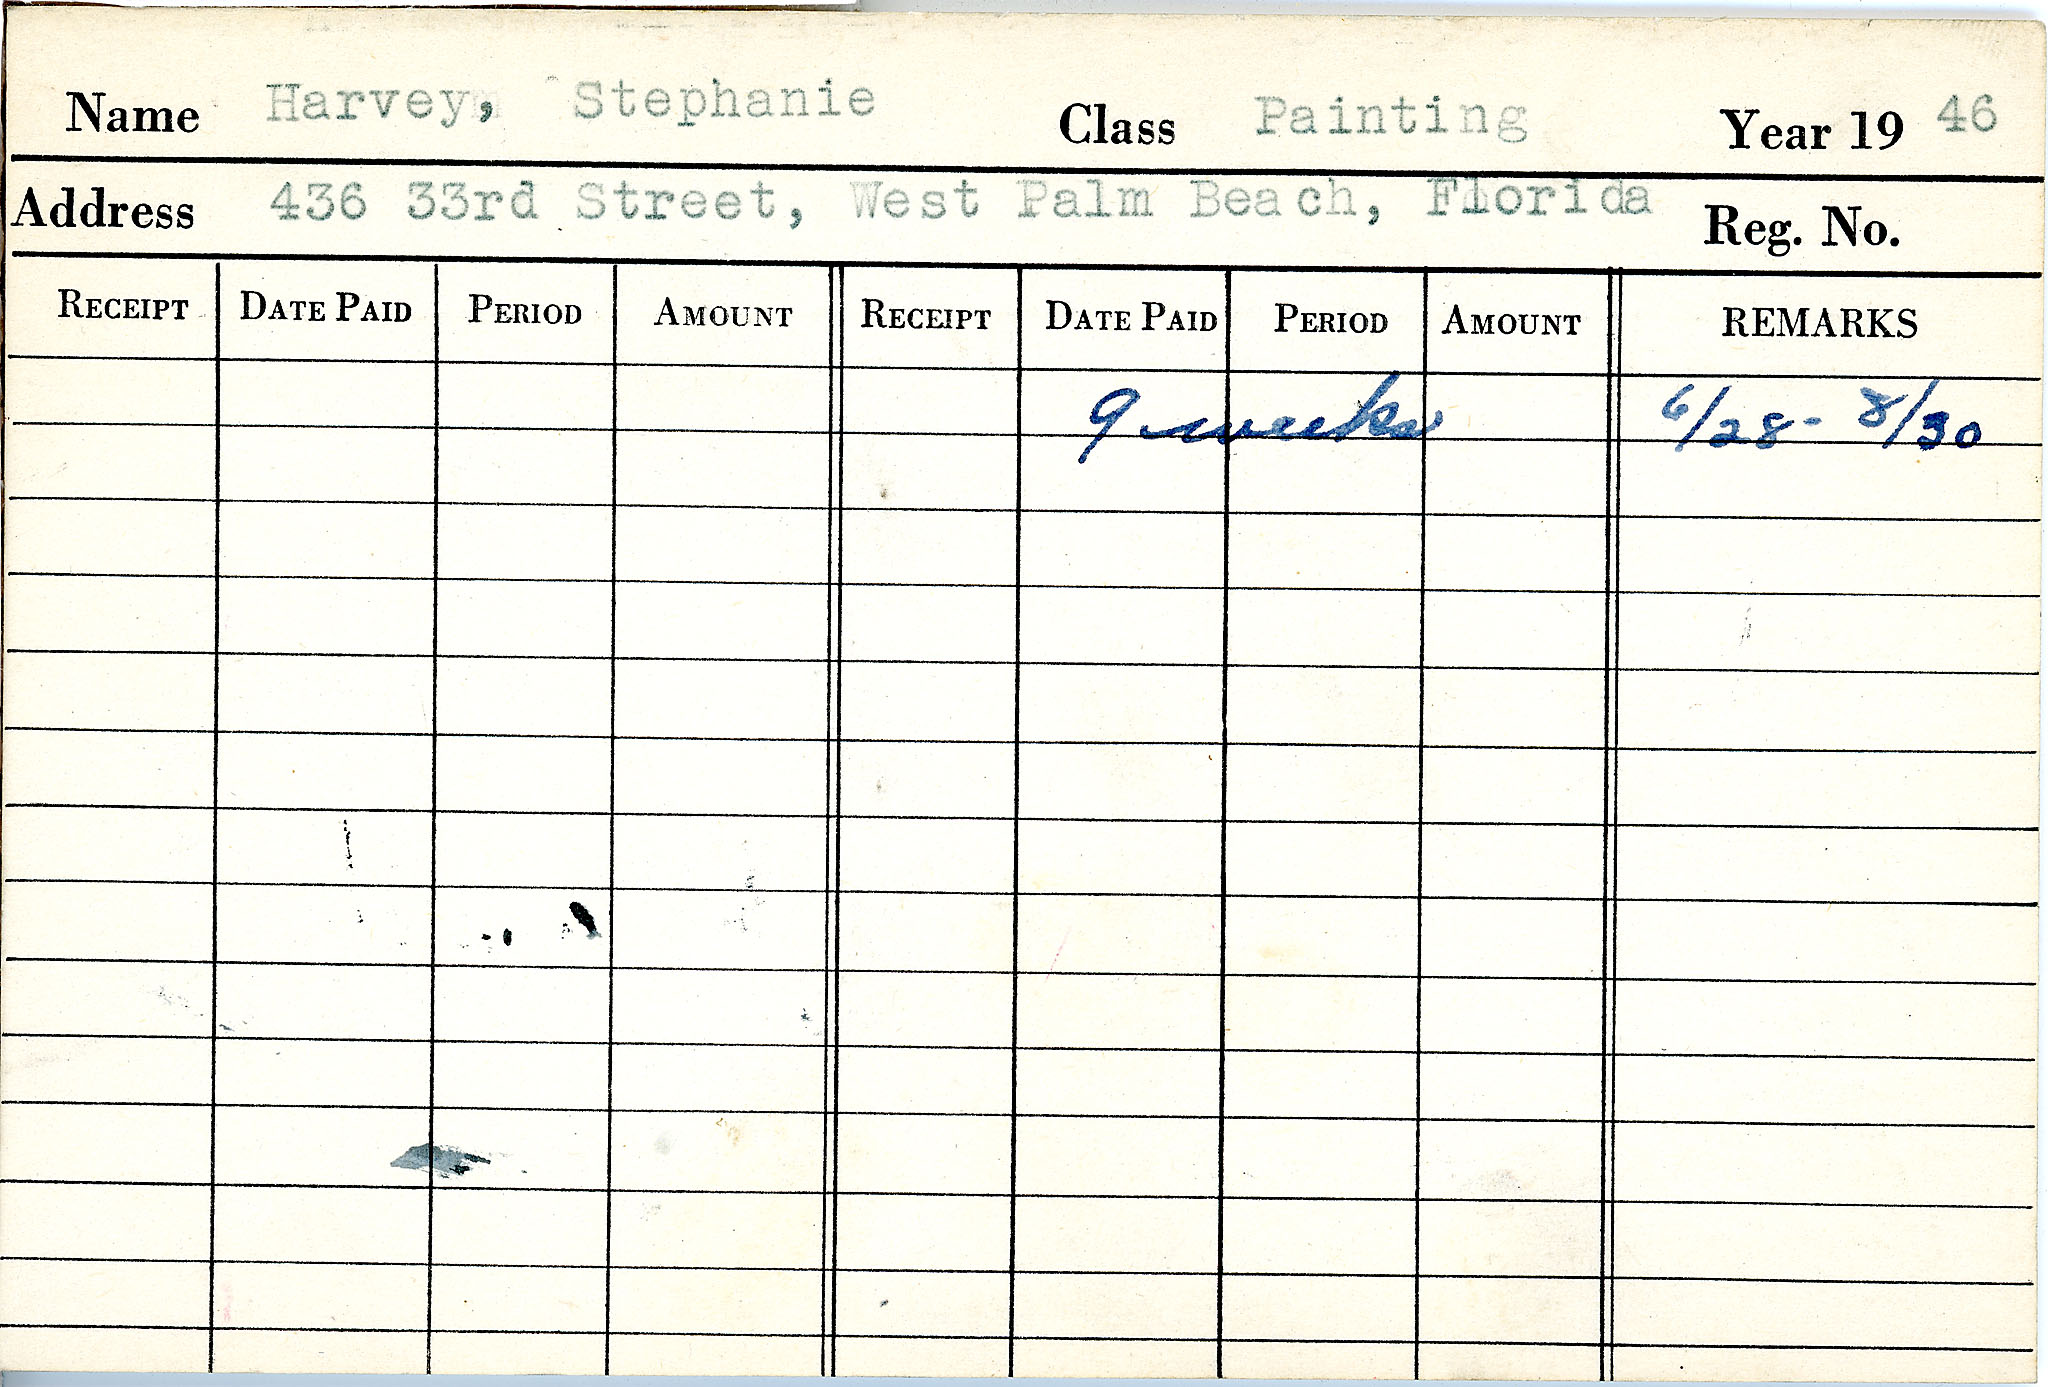 Name Harvey, Stephanie Class Painting Year 19 46
Address 436 33rd Street, West Palm Beach, Florida Reg. No.
RECEIPT DATE PAID PERIOD AMOUNT RECEIPT DATE PAID PERIOD AMOUNT REMARKS
9 weeks 6/28 - 8/30